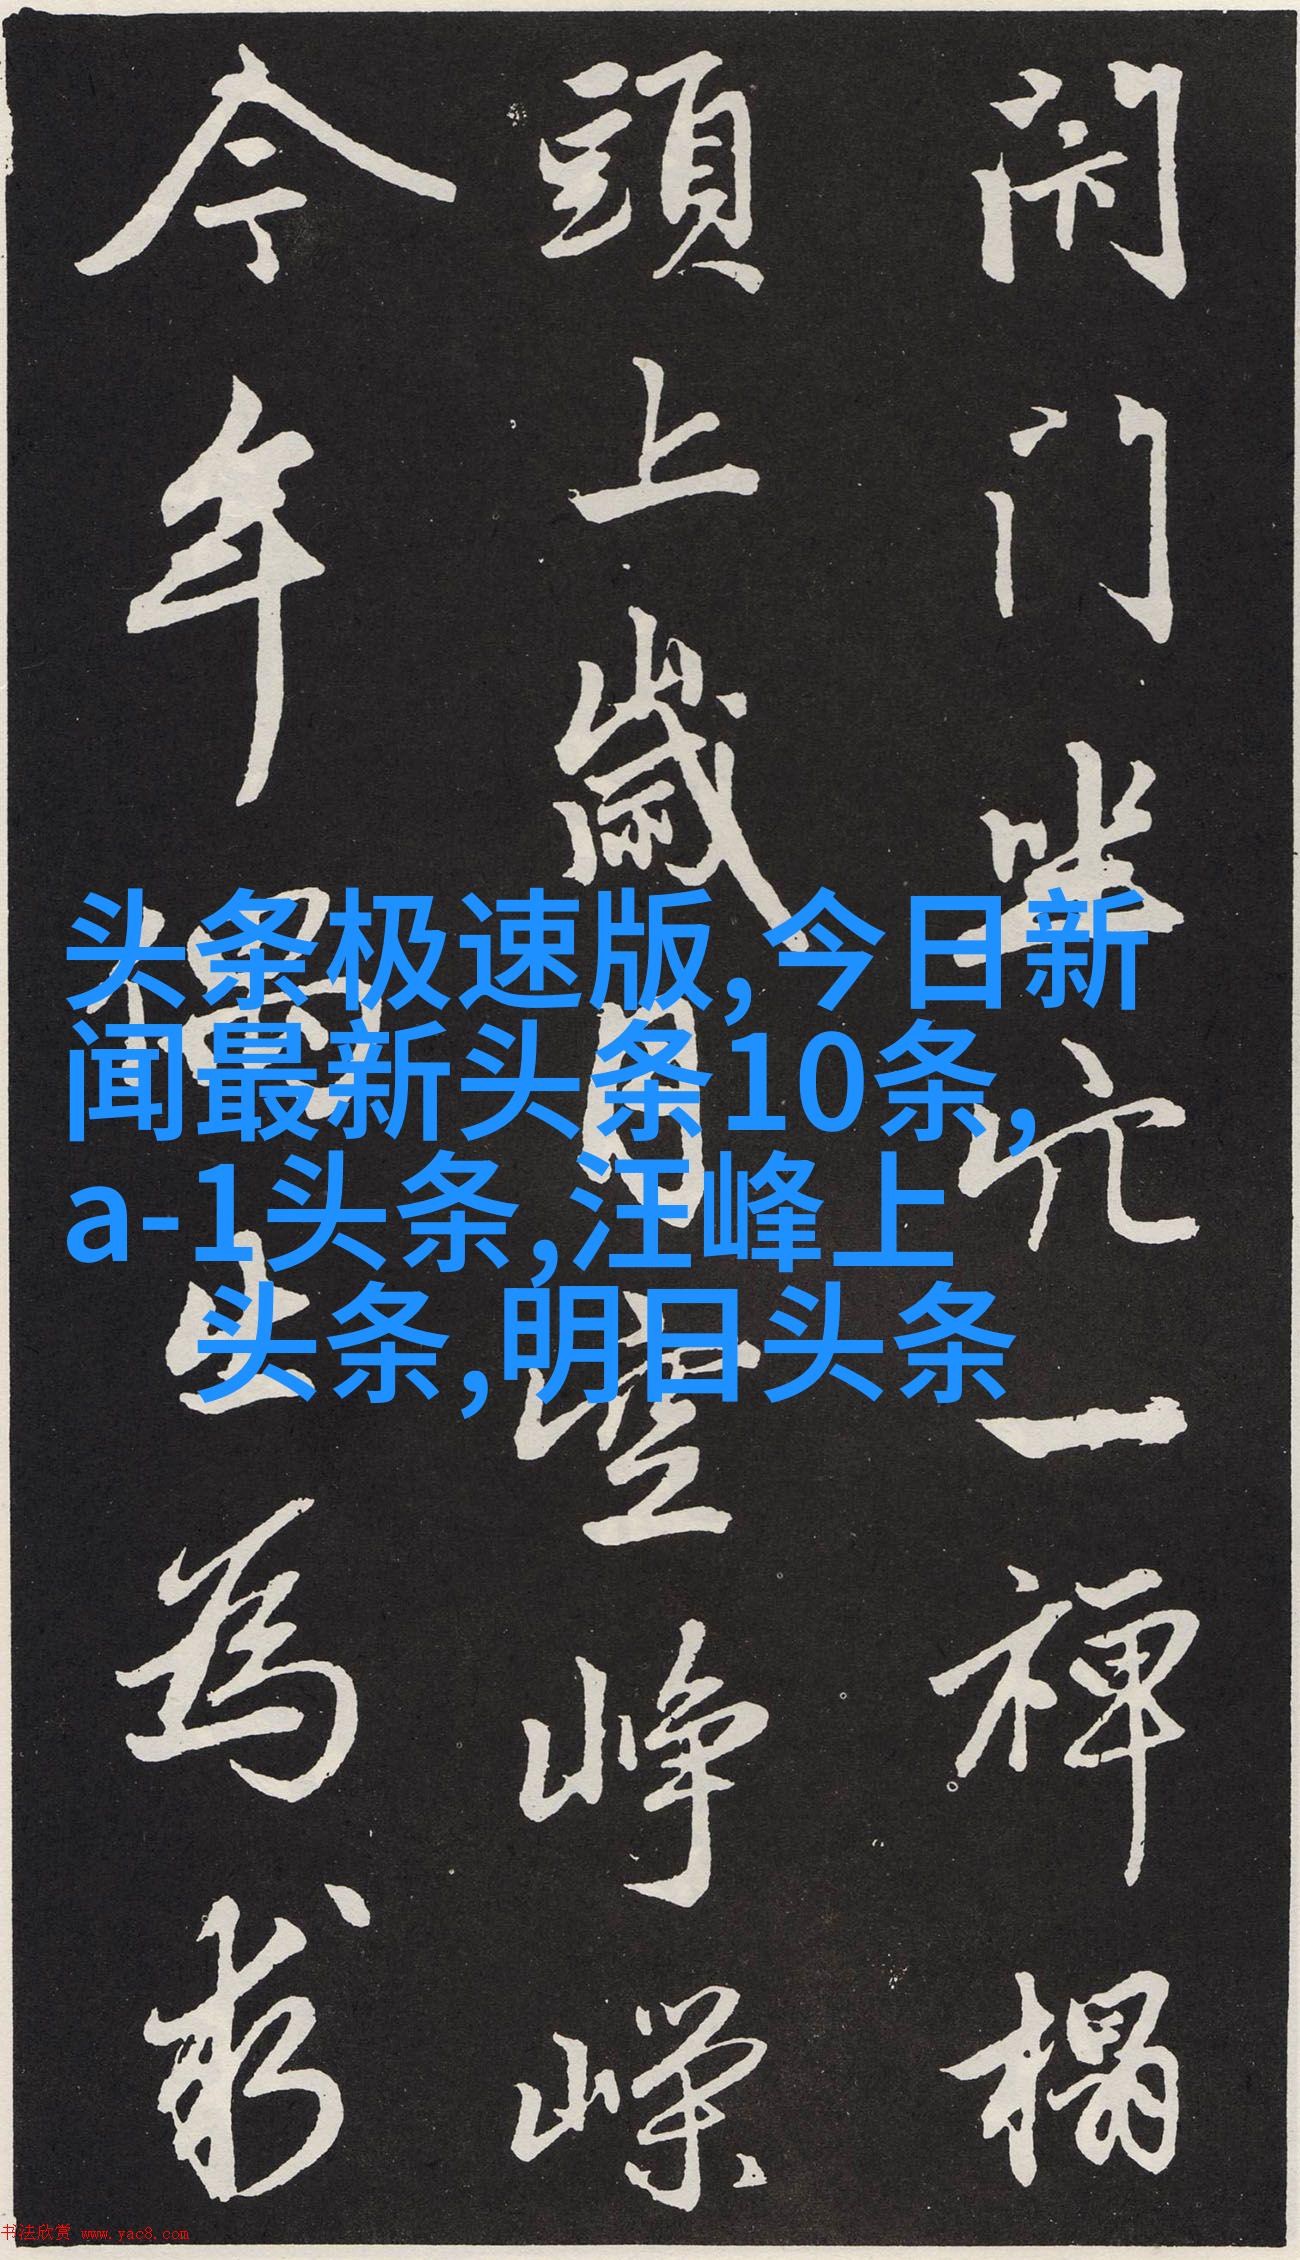 閉門坐穴一禪榻
頭上歲月空崢嶸
今年偶出為求
头条极速版,今日新
闻最新头条10条,
a-1头条,汪峰上
头条,明日头条
书法欣赏 www.yac8.com